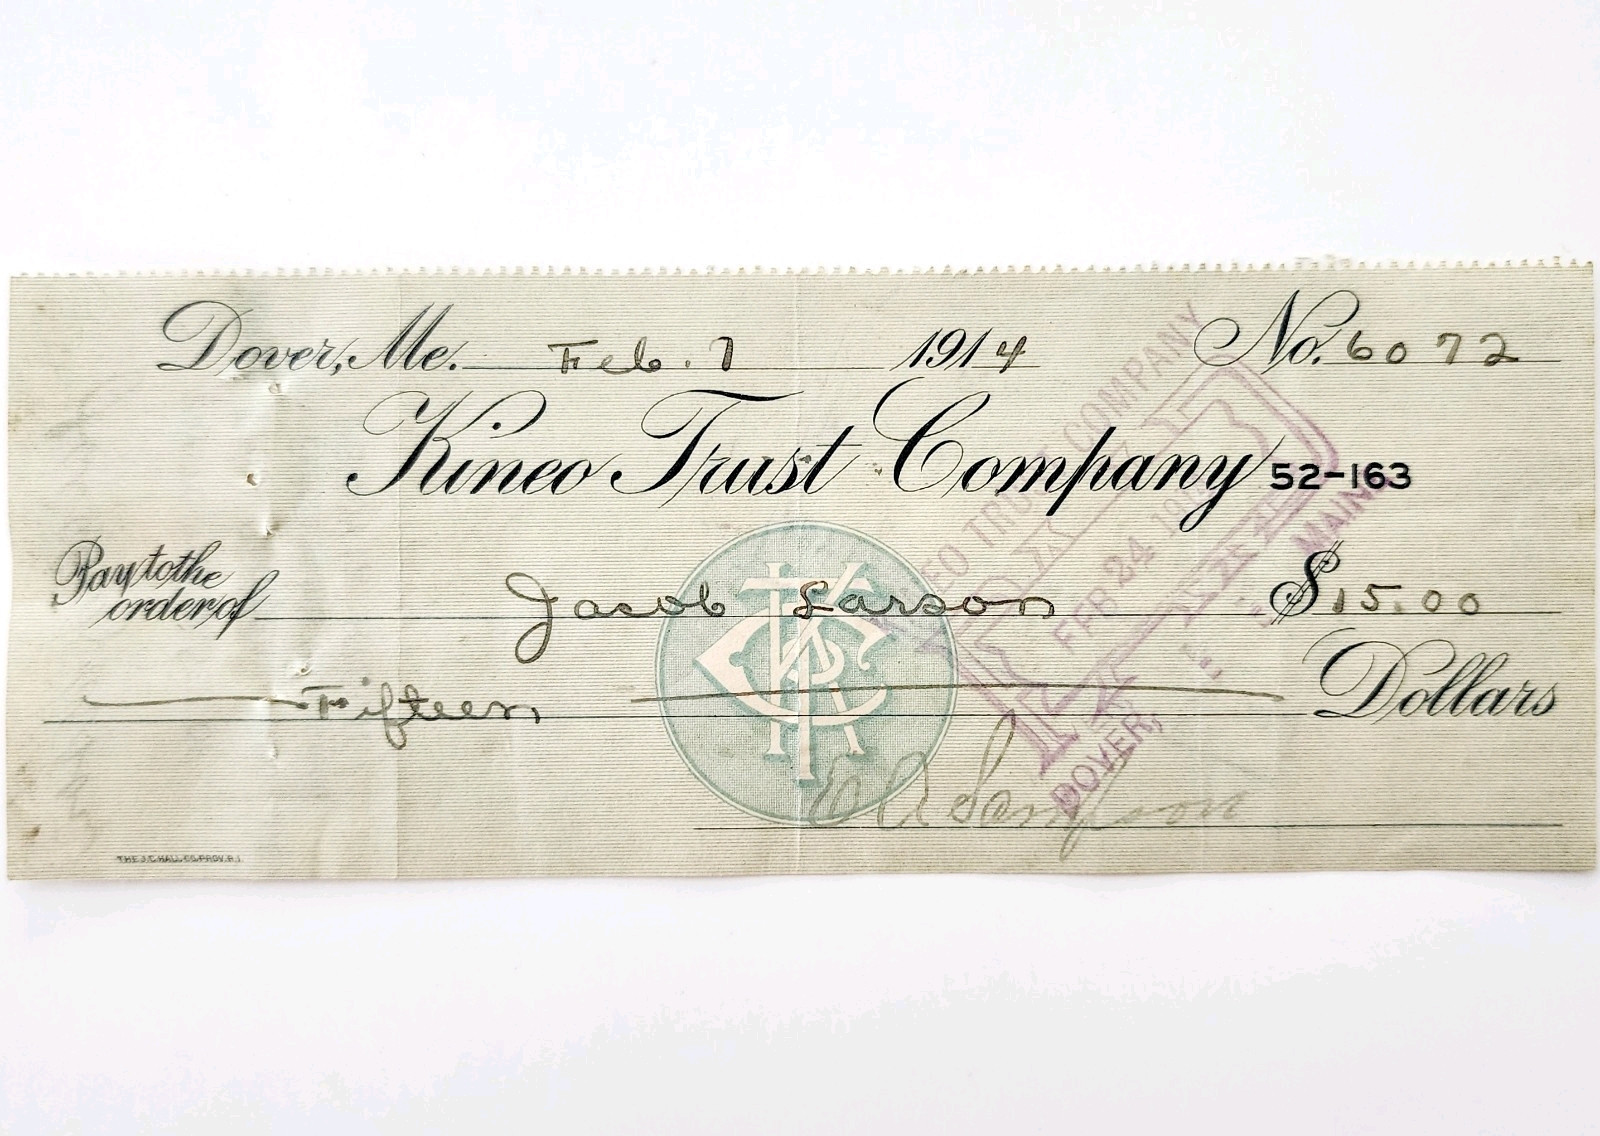 Dover, Me. Feb. 7 1914 No. 6072
Kineo Trust Company 52-163
Pay to the order of Jacob Larson $15.00
Fifteen Dollars
Sampson
KINEO TRUST COMPANY
FEB 24 19
DOVER, MAINE
KTC
THE J.C. HALL CO. PROV. R.I.